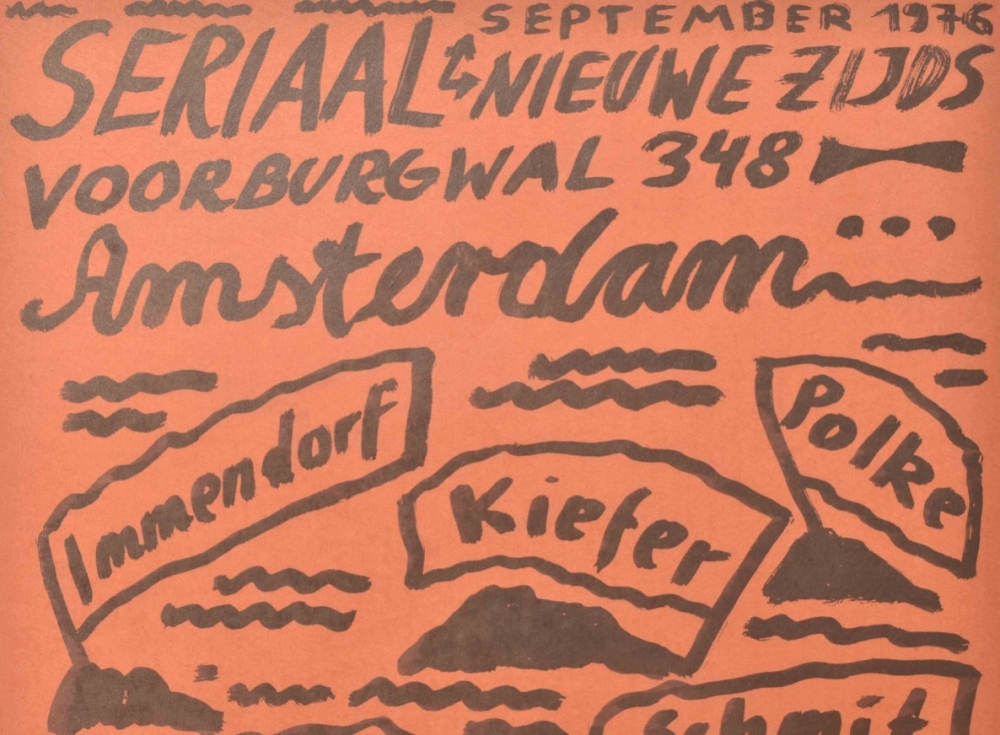 SEPTEMBER 1976
SERIAAL NIEUWE ZIJDS
VOORBURGWAL 348
Amsterdam
Immendorf
Kiefer
Polke
Schmit